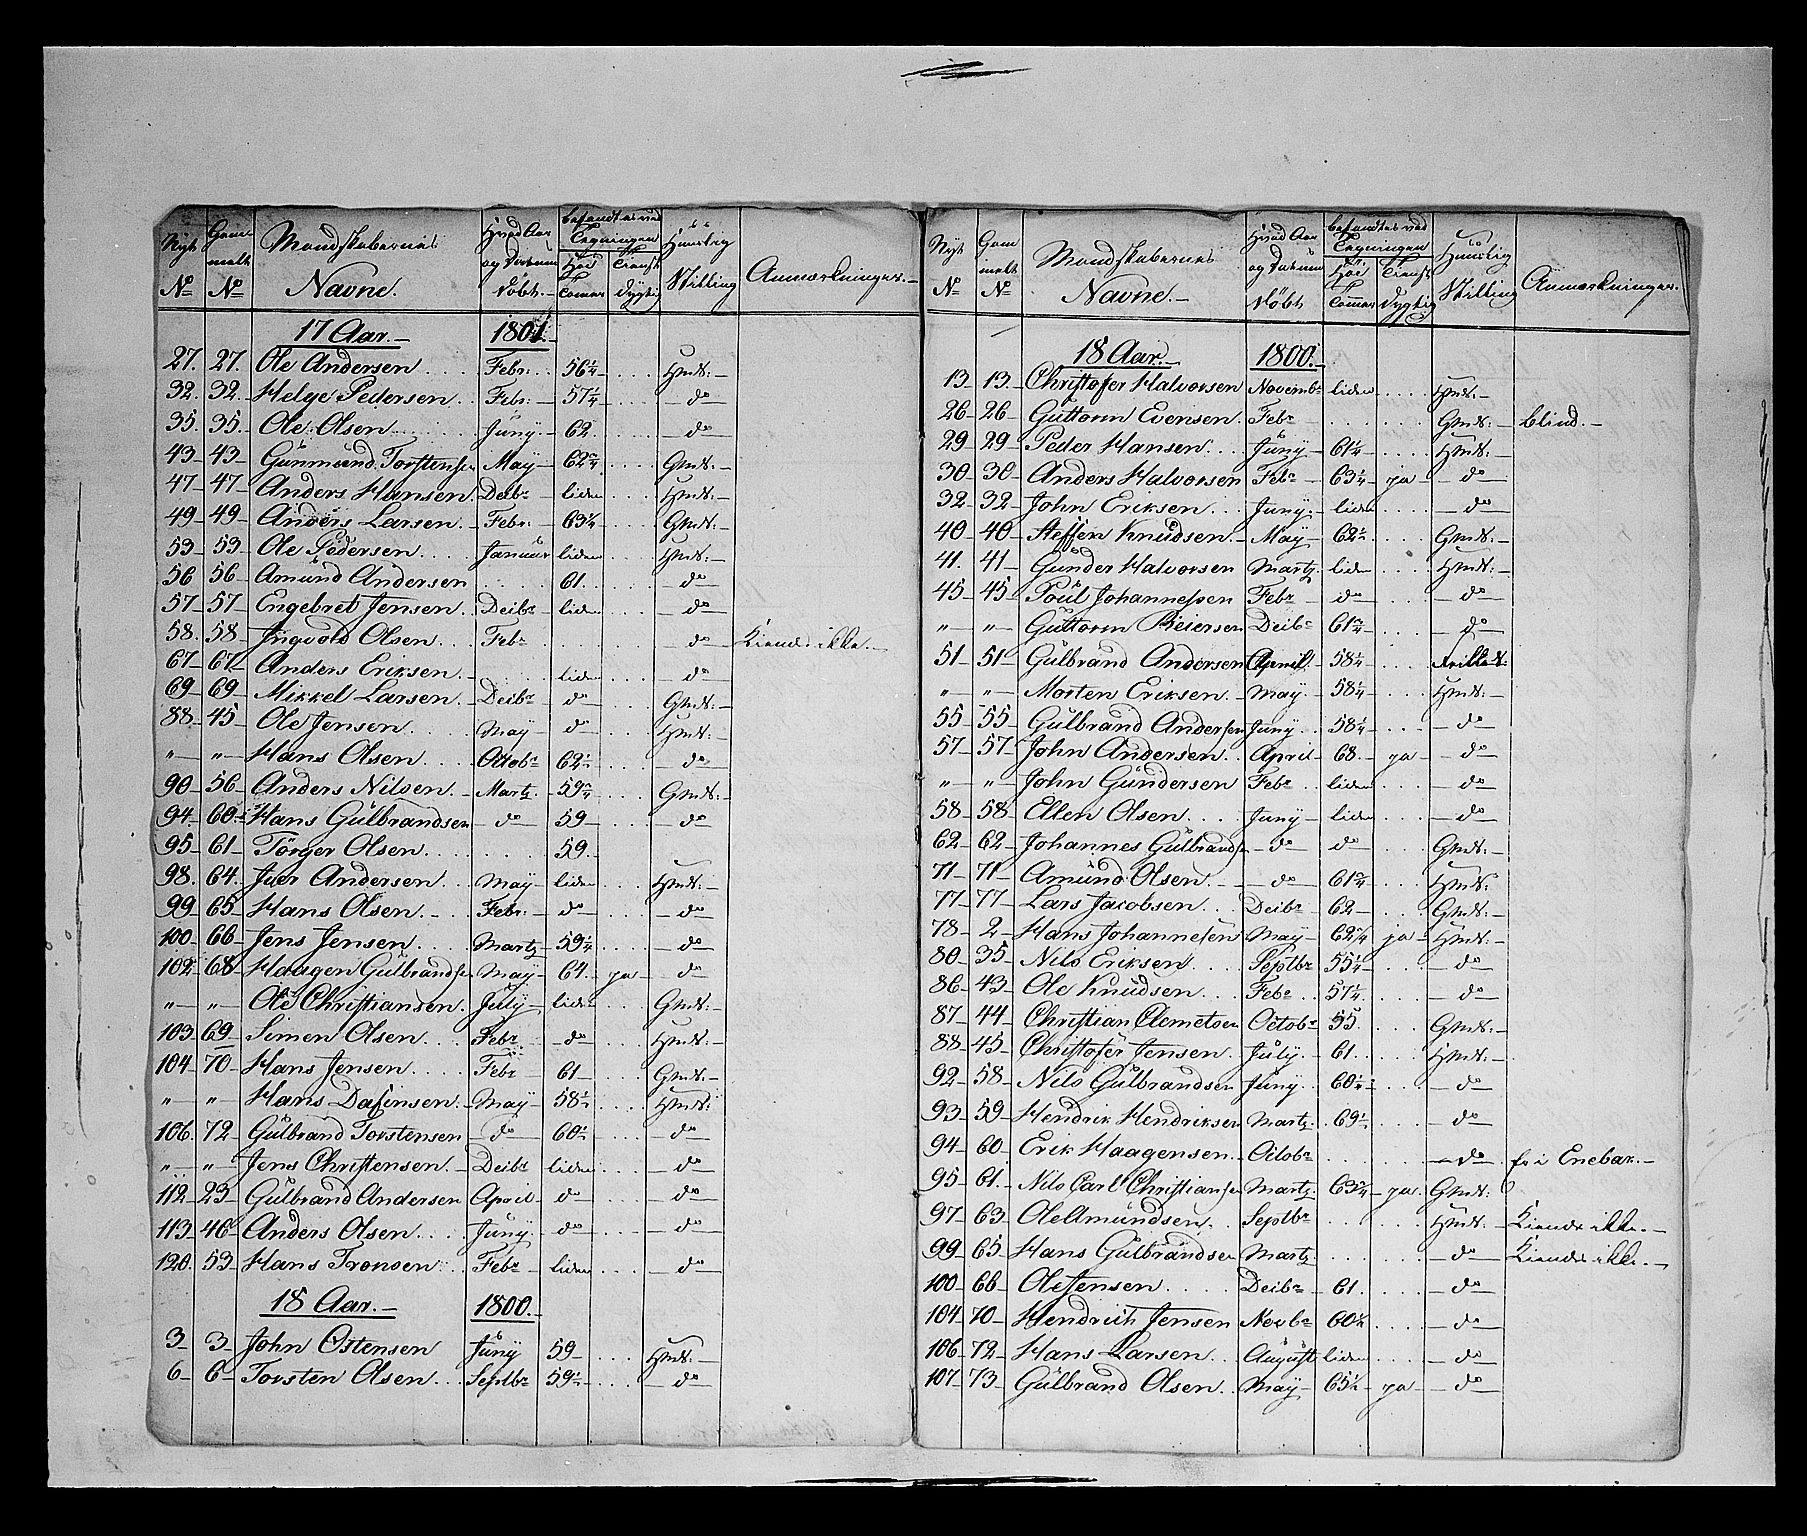 Nyt No Gammelt No Mandskabernes Navne. Hvad Aar og Datum Döbt. befandtes ved Tegningen Höi Tommer Tienst dygtig Huuslig Stilling Anmærkninger.
17 Aar. 1801.
27. 27. Ole Andersen Febr. 56¼ Hmd:
32. 32. Helge Pedersen Febr: 57¼ do
35. 35. Ole Olsen Juny 62 do
43 43 Gunmund Torstensen May 62¾ Gmd:
47 47 Anders Hansen Deibr liden Hmd:
49 49 Anders Larsen Febr: 63¼ Gmd:
53 53 Ole Pedersen Januar liden Hmd:
56 56 Amund Andersen 61. do
57 57 Engebret Jensen Deibr liden do
58. 58 Ingvold Olsen Febr do Kiendes ikke.
67 67 Anders Eriksen liden do
69 69 Mikkel Larsen Deibr do Gmd:
88 45 Ole Jensen May do Hmd:
" " Hans Olsen Octobr 62½ do
90 56 Anders Nilsen Martz 59¾ Gmd:
94 60 Hans Gulbrandsen do 59 do
95 61 Törger Olsen 59
98. 64. Iver Andersen May liden Hmd:
99 65 Hans Olsen Febr: do do
100 66 Jens Jensen Martz 59¼ do
102 68 Haagen Gulbrandsen May 64. ja do
" " Ole Christiansen July liden Gmd:
103 69 Simen Olsen Febr do Hmd:
104 70 Hans Jensen Febr 61 Gmd:
" " Hans Dafinsen May 58½ Hmd:
106 72 Gulbrand Torstensen do 60½ do
" " Jens Christensen Deibr liden do
112 23 Gulbrand Andersen April do do
113 46 Anders Olsen Juny do do
120. 53 Hans Tronsen Febr liden do
18 Aar. 1800.
3 3 John Ostensen Juny 59 Hmd:
6 6 Torsten Olsen Septbr 59½ do
Nyt No Gammelt No Mandskabernes Navne. Hvad Aar og Datum Döbt befandtes ved Tegningen Höi Tommer Tienst dygtig Huuslig Stilling Anmærkninger.
18 Aar. 1800.
13 13 Christofer Halvorsen Novembr liden Hmd:
26 26 Guttorm Evensen Febr Gmd: blind.
29 29 Peder Hansen Juny 61¼ Hmd:
30 30 Anders Halvorsen Febr 63¼ ja do
32 32 John Eriksen Juny liden do
40 40 Steffen Knudsen May 62½ Gmd:
41. 41 Gunder Halvorsen Martz liden Hmd:
45 45 Poul Johannessen Febr do do
" " Guttorm Reiersen Deibr 61¾ do
51 51 Gulbrand Andersen April 58¼
" " Morten Eriksen May 58¼ Hmd:
55 55 Gulbrand Andersen Juny 58¼ do
57 57 John Andersen April 68 ja do
" " John Gundersen Febr liden do
58 58 Ellen Olsen Juny liden do
62 62 Johannes Gulbrandsen do do Gmd:
71 71 Amund Olsen do 61¾ Hmd:
77 77 Lars Jacobsen Deibr 62 Gmd:
78 2 Hans Johannesen May 62¼ ja Hmd:
80 35 Nils Eriksen Septbr 55¼ do
86 43 Ole Knudsen Febr 57¼ do
87 44 Christian Clemetsen Octobr 55 Gmd:
88 45 Christofer Jensen July 61 Hmd:
92 58 Nils Gulbrandsen Juny 60¼ do
93 59 Hendrik Hendriksen Martz 69½ do
94 60 Erik Haagensen Octobr do er i Enebak.
95 61 Nils Carl Christiansen Martz 63¾ ja Gmd:
97 63 Ole Amundsen Septbr Hmd: Kiendes ikke.
99 65 Hans Gulbrandsen Martz do Kiendes ikke.
100 66 Ole Jensen Deibr 61 do
104 70 Hendrich Jensen Novbr 60¼ do
106 72 Hans Larsen August liden do
107 73 Gulbrand Olsen May 65¼ ja do